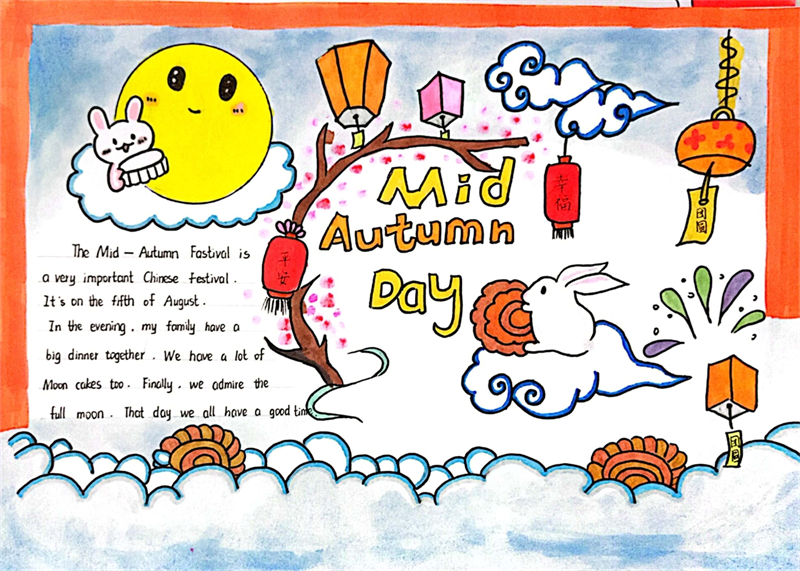 Mid
Autumn
Day
幸福
团圆
平安
The Mid - Autumn Fastival is
a very important Chinese festival.
It's on the fifth of August.
In the evening, my family have a
big dinner together. We have a lot of
Moon cakes too. Finally, we admire the
full moon. That day we all have a good time
团圆